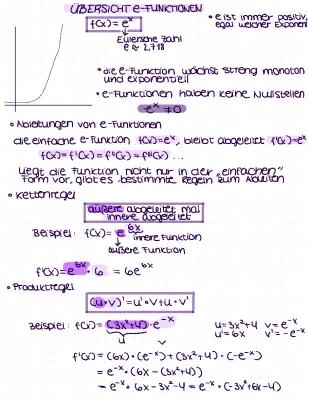 ÜBERSICHT e-FUNKTIONEN
f(x) = e^x
Eulersche Zahl
e ≈ 2,718
• e ist immer positiv,
egal welcher Exponent
• die e-Funktion wächst streng monoton
und exponentiell
• e-Funktionen haben keine Nullstellen
e^x ≠ 0
• Ableitungen von e-Funktionen
die einfache e-Funktion f(x)=e^x, bleibt abgeleitet f'(x)=e^x
f(x) = f'(x) = f''(x) = f'''(x) ...
Liegt die Funktion nicht nur in der „einfachen"
Form vor, gibt es bestimmte Regeln zum Ableiten
• Kettenregel
äußere abgeleitet mal
innere abgeleitet
Beispiel: f(x) = e^6x
innere Funktion
äußere Funktion
f'(x) = e^6x · 6 = 6e^6x
• Produktregel
(u·v)' = u'·v+u·v'
Beispiel: f(x) = (3x²+4) · e^-x
u v
u=3x²+4 v=e^-x
u'=6x v'=-e^-x
f'(x) = (6x)·(e^-x)+(3x²+4)·(-e^-x)
= e^-x · (6x - (3x²+4))
= e^-x · 6x - 3x² - 4 = e^-x · (-3x²+6x-4)